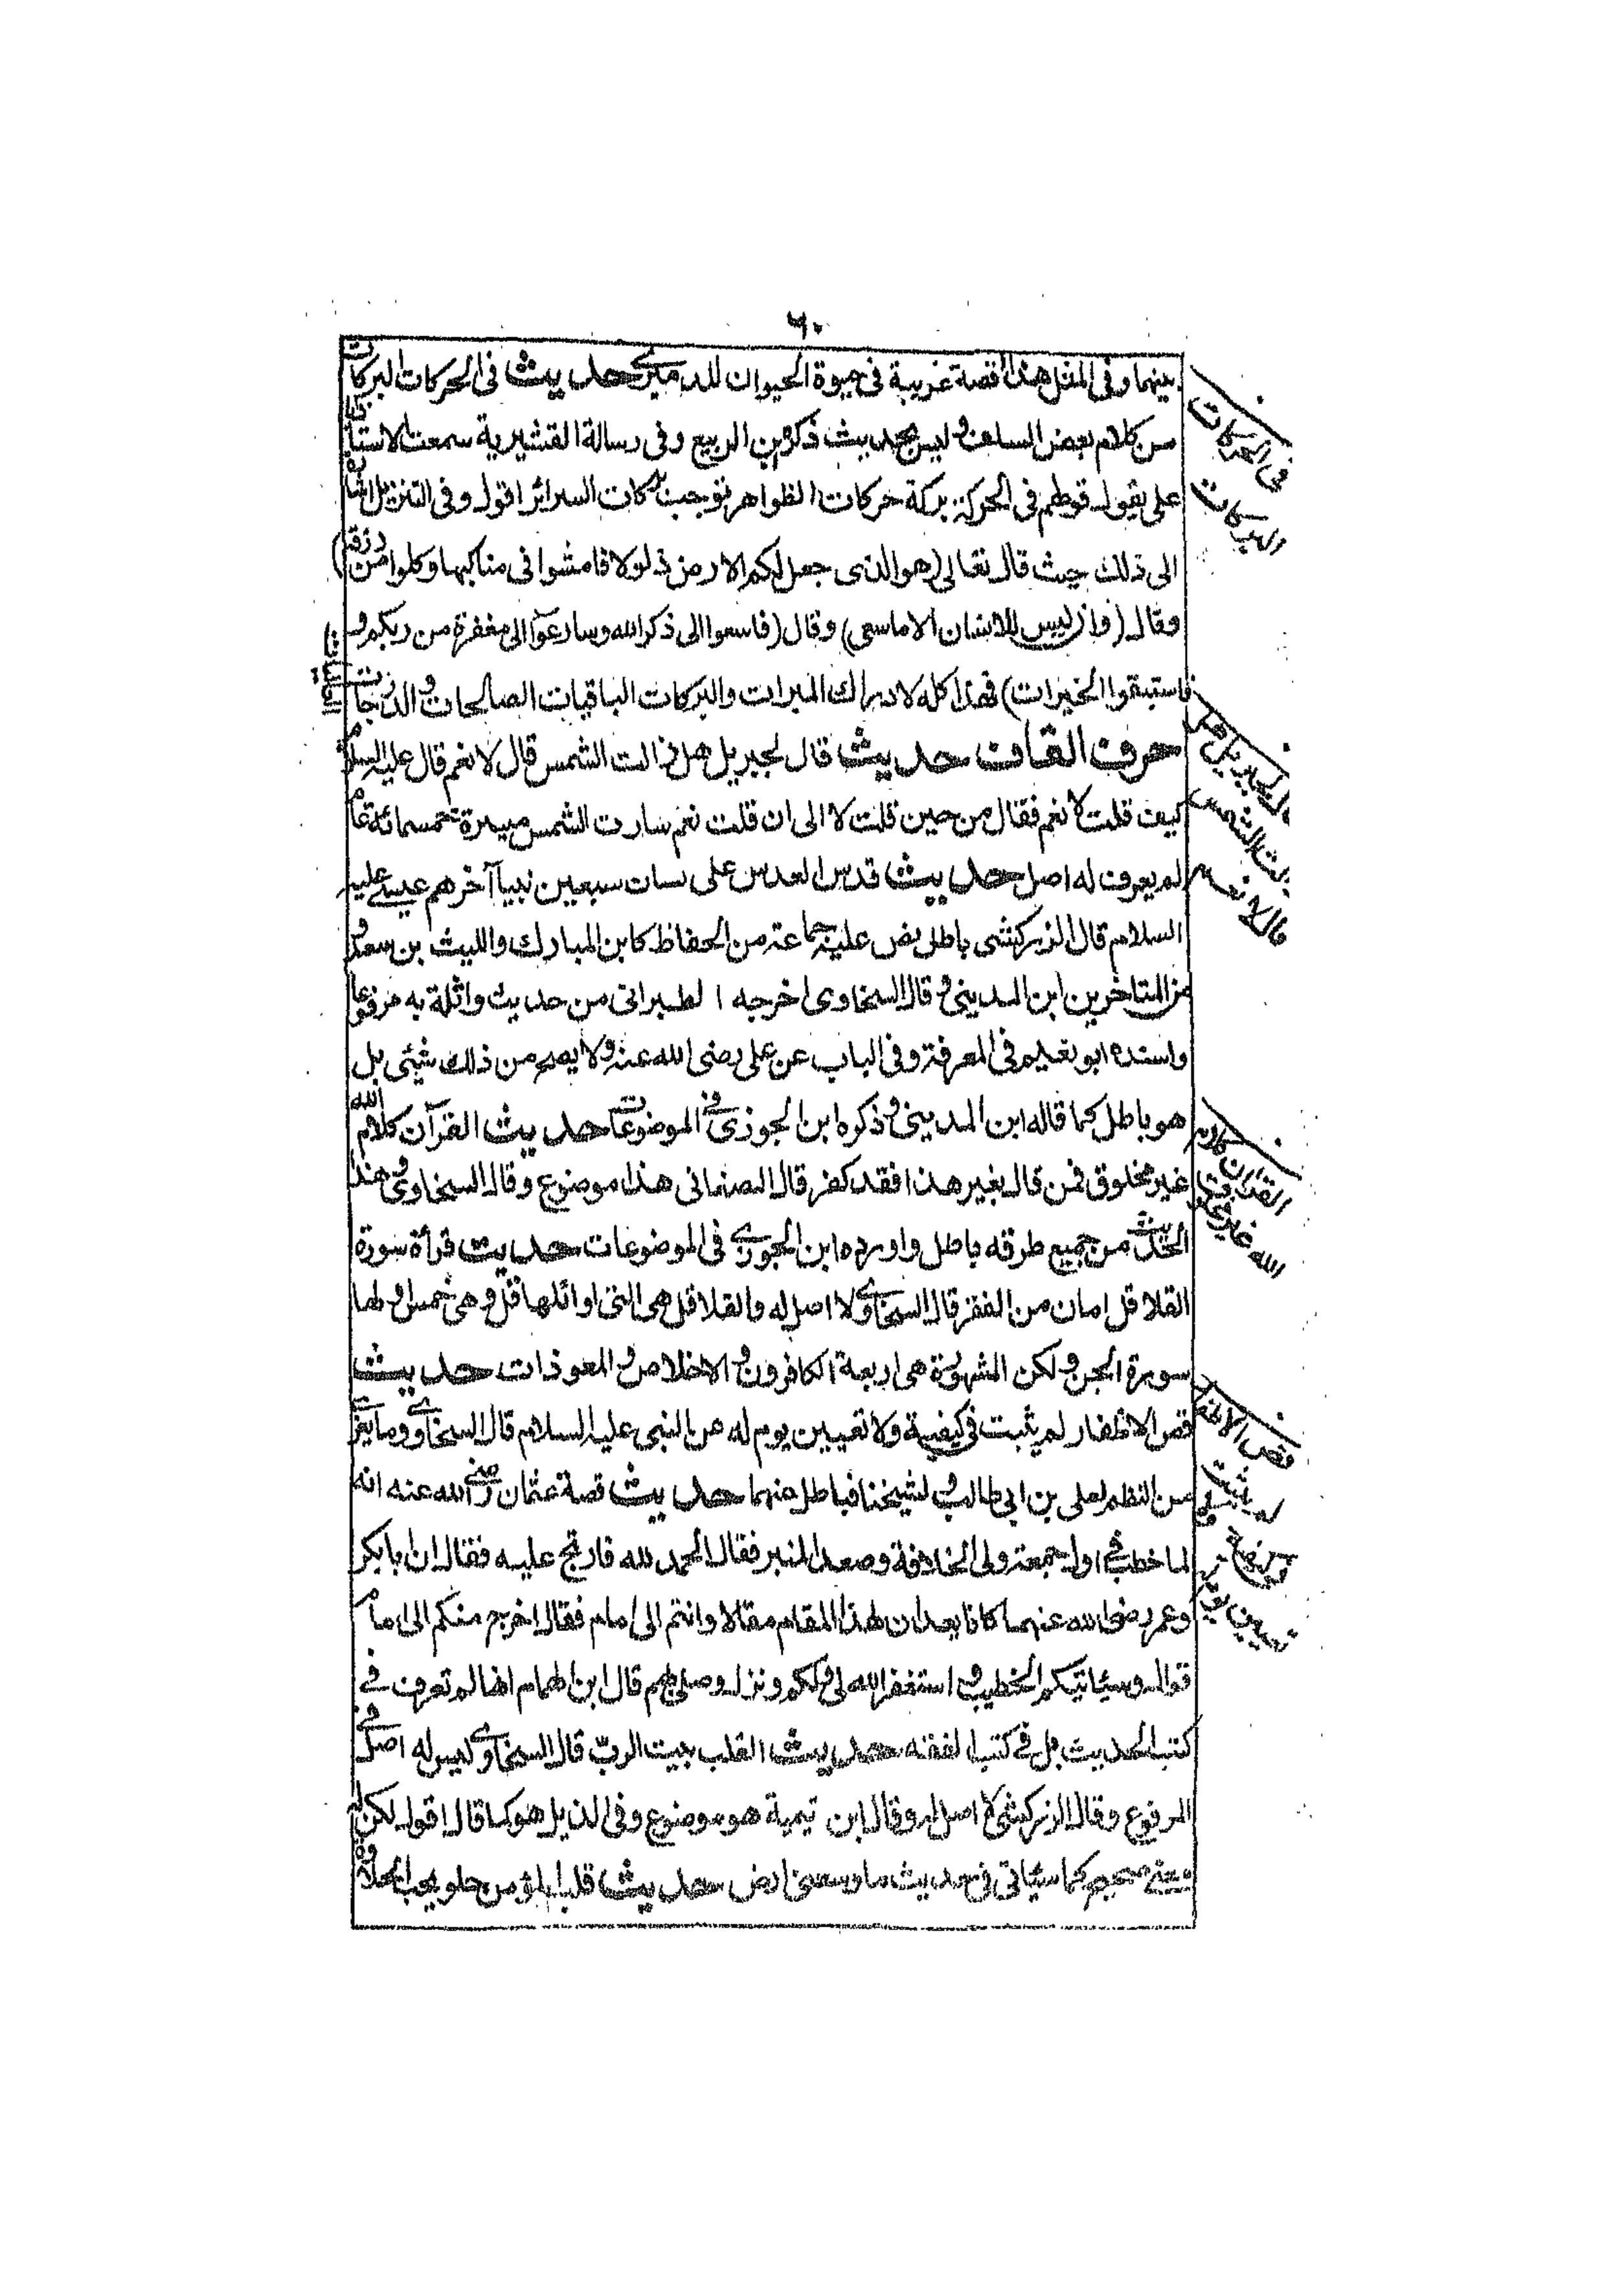 ٦٠
بينهما وفى المثل هذا قصة غريبة فى حيوة الحيوان للدميرى حديث فى الحركات البركات
من كلام بعض السلف وليس بحديث ذكره بن الربيع وفى رسالة القشيرية سمعت الاستاذ ابا
على يقول قولهم فى الحركة بركة حركات الظواهر توجب بركات السرائر اقول وفى التنزيل اشارة
الى ذلك حيث قال تعالى (هو الذى جعل لكم الارض ذلولا فامشوا فى مناكبها وكلوا من رزقه)
وقال (وان ليس للانسان الا ما سعى) وقال (فاسعوا الى ذكر الله وسارعوا الى مغفرة من ربكم و
فاستبقوا الخيرات) فهذا كله لادراك المبرات والبركات الباقيات الصالحات والدرجات
حرف القاف حديث قال لجبريل هل زالت الشمس قال لا نعم قال عليه السلام
كيف قلت لا نعم فقال من حين قلت لا الى ان قلت نعم سارت الشمس مسيرة خمسمائة عام
لم يعرف له اصل حديث قدس العدس على لسان سبعين نبيا آخرهم عيسى عليه
السلام قال الزركشى باطل نص عليه جماعة من الحفاظ كابن المبارك والليث بن سعد و
من المتاخرين ابن المدينى و قال السخاوى اخرجه الطبرانى من حديث واثلة به مرفوعا
واسنده ابو نعيم فى المعرفة وفى الباب عن على رضى الله عنه ولا يصح من ذلك شيئى بل
هو باطل كما قاله ابن المدينى وذكره ابن الجوزى فى الموضوعات حديث القرآن كلام الله
غير مخلوق فمن قال بغير هذا فقد كفر قال الصنعانى هذا موضوع وقال السخاوى وهذا
الحديث من جميع طرقه باطل واورده ابن الجوزى فى الموضوعات حديث قرأة سورة
القلاقل امان من الفقر قال السخاوى لا اصل له والقلاقل هى التى اوائلها قل وهى خمس اولها
سورة الجن ولكن المشهورة هى اربعة الكافرون و الاخلاص و المعوذات حديث
قص الاظفار لم يثبت فى كيفية ولا تعيين يوم له عن النبى عليه السلام قال السخاوى وما يعزى
من النظم لعلى بن ابى طالب و لشيخنا فباطل عنهما حديث قصة عثمان رضى الله عنه انه
لما خطب فى اول جمعة ولى الخلافة وصعد المنبر فقال الحمد لله فارتج عليه فقال ان ابا بكر
وعمر رضى الله عنهما كانا يعدان لهذا المقام مقالا وانتم الى امام فقال اخرج منكم الى امام
قوال وسيأتيكم الخطيب و استغفر الله لى ولكم ونزل وصلى بهم قال ابن الهمام انها لم تعرف فى
كتب الحديث بل فى كتب الفقه حديث القلب بيت الرب قال السخاوى ليس له اصل فى
المرفوع وقال الزركشى لا اصل له وقال ابن تيمية هو موضوع وفى الذيل هو كما قال اقول لكن له
معنى صحيح كما سيأتى فى حديث ما وسعنى ارضى حديث قلب المؤمن حلو يحب الحلاوة
فى الحركات
البركات
لجبريل هل
الشمس
قال لا نعم
القرآن كلام
الله غير مخلوق
قص الاظفار
لم يثبت
تعيين يوم